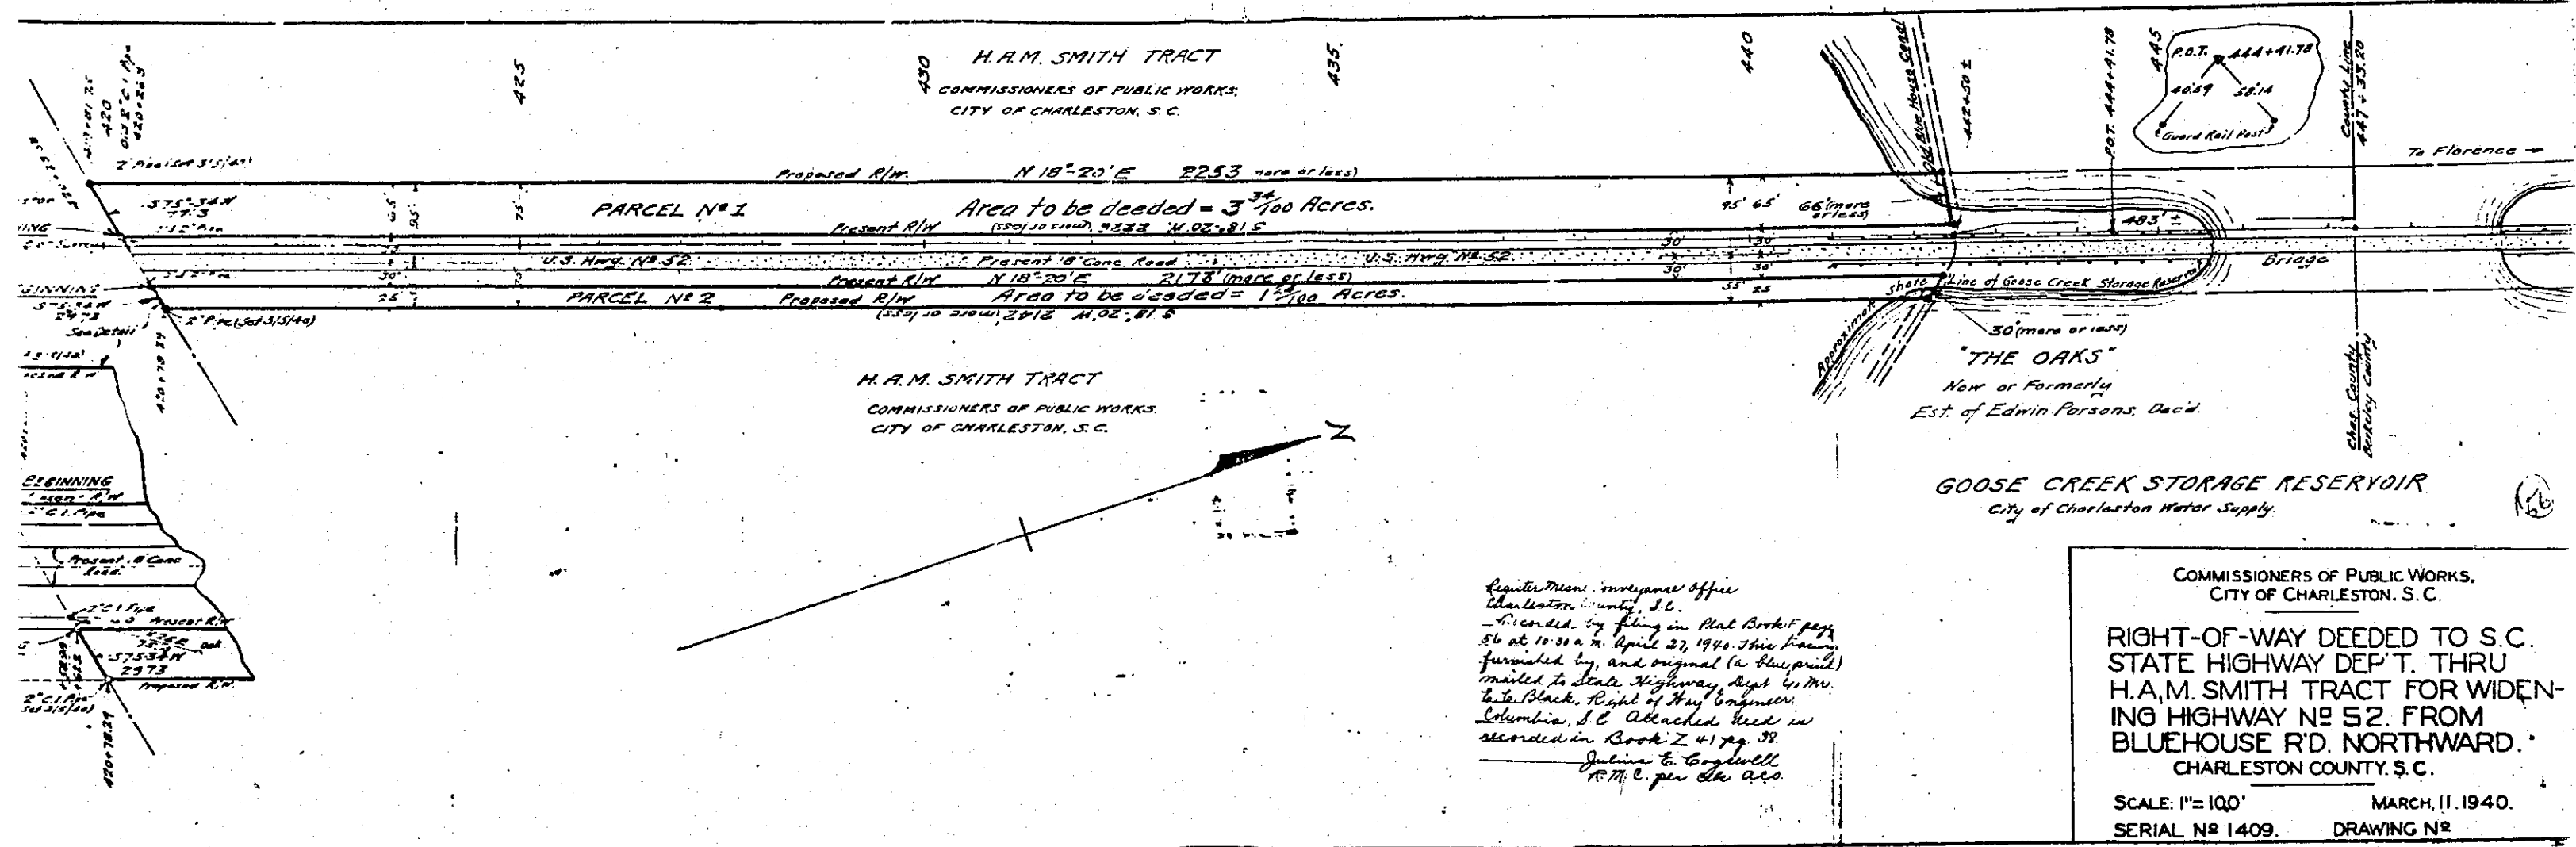 H.A.M. SMITH TRACT
COMMISSIONERS OF PUBLIC WORKS,
CITY OF CHARLESTON, S.C.
420
425
430
435
440
445
Old Blue House Canal
442+50 ±
P.O.T. 444+41.78
P.O.T. 444+41.78
40.59 58.14
Guard Rail Posts
County Line
447+33.20
To Florence
2" Pipe (Set 3/5/40)
Proposed R/W N 18°-20' E 2253 more or less)
S 75°-34 W
77.3
65' 95' 75'
PARCEL Nº 1 Area to be deeded = 3 34/100 Acres.
95' 65' 66' (more or less)
Present R/W S 18°-20' W. 2226 (more or less)
483' ±
30' 30'
U.S. Hwy. Nº 52 Present 18' Conc Road U.S. Hwy. Nº 52
Bridge
30' 30' 30'
Present R/W N 18°-20' E 2173' (more or less)
25'
PARCEL Nº 2 Proposed R/W Area to be deeded = Acres.
55' 25
S 18°-20' W 2142 (more or less)
Approximate Shore Line of Goose Creek Storage Reservoir
BEGINNING
S 75-34 W
29.73
See Detail
2" Pipe (Set 3/5/40)
420+78.29
30' (more or less)
"THE OAKS"
Now or Formerly
Est. of Edwin Parsons, Dec'd.
Chas. County
Berkeley County
H.A.M. SMITH TRACT
COMMISSIONERS OF PUBLIC WORKS.
CITY OF CHARLESTON, S.C.
Z
GOOSE CREEK STORAGE RESERVOIR
City of Charleston Water Supply.
BEGINNING
2" C.I. Pipe
Present 18' Conc Road.
2" C.I. Pipe
Present R/W
S 75-34 W
29.73
Proposed R/W
2" C.I. Pipe
Set 3/5/40)
420+78.29
Register Mesne Conveyance Office
Charleston County, S.C.
Recorded by filing in Plat Book F page
56 at 10:30 a.m. April 27, 1940. This tracing
furnished by, and original (a blue print)
mailed to State Highway Dept c/o Mr.
Black, Right of Way Engineer,
Columbia, S.C. Attached deed is
recorded in Book Z 41 pg. 38.
Julius E. Cogswell
R.M.C. per
COMMISSIONERS OF PUBLIC WORKS.
CITY OF CHARLESTON. S. C.
RIGHT-OF-WAY DEEDED TO S.C.
STATE HIGHWAY DEP'T. THRU
H.A.M. SMITH TRACT FOR WIDEN-
ING HIGHWAY Nº 52. FROM
BLUEHOUSE R'D. NORTHWARD.
CHARLESTON COUNTY. S.C.
SCALE: 1"=100' MARCH, 11. 1940.
SERIAL Nº 1409. DRAWING Nº